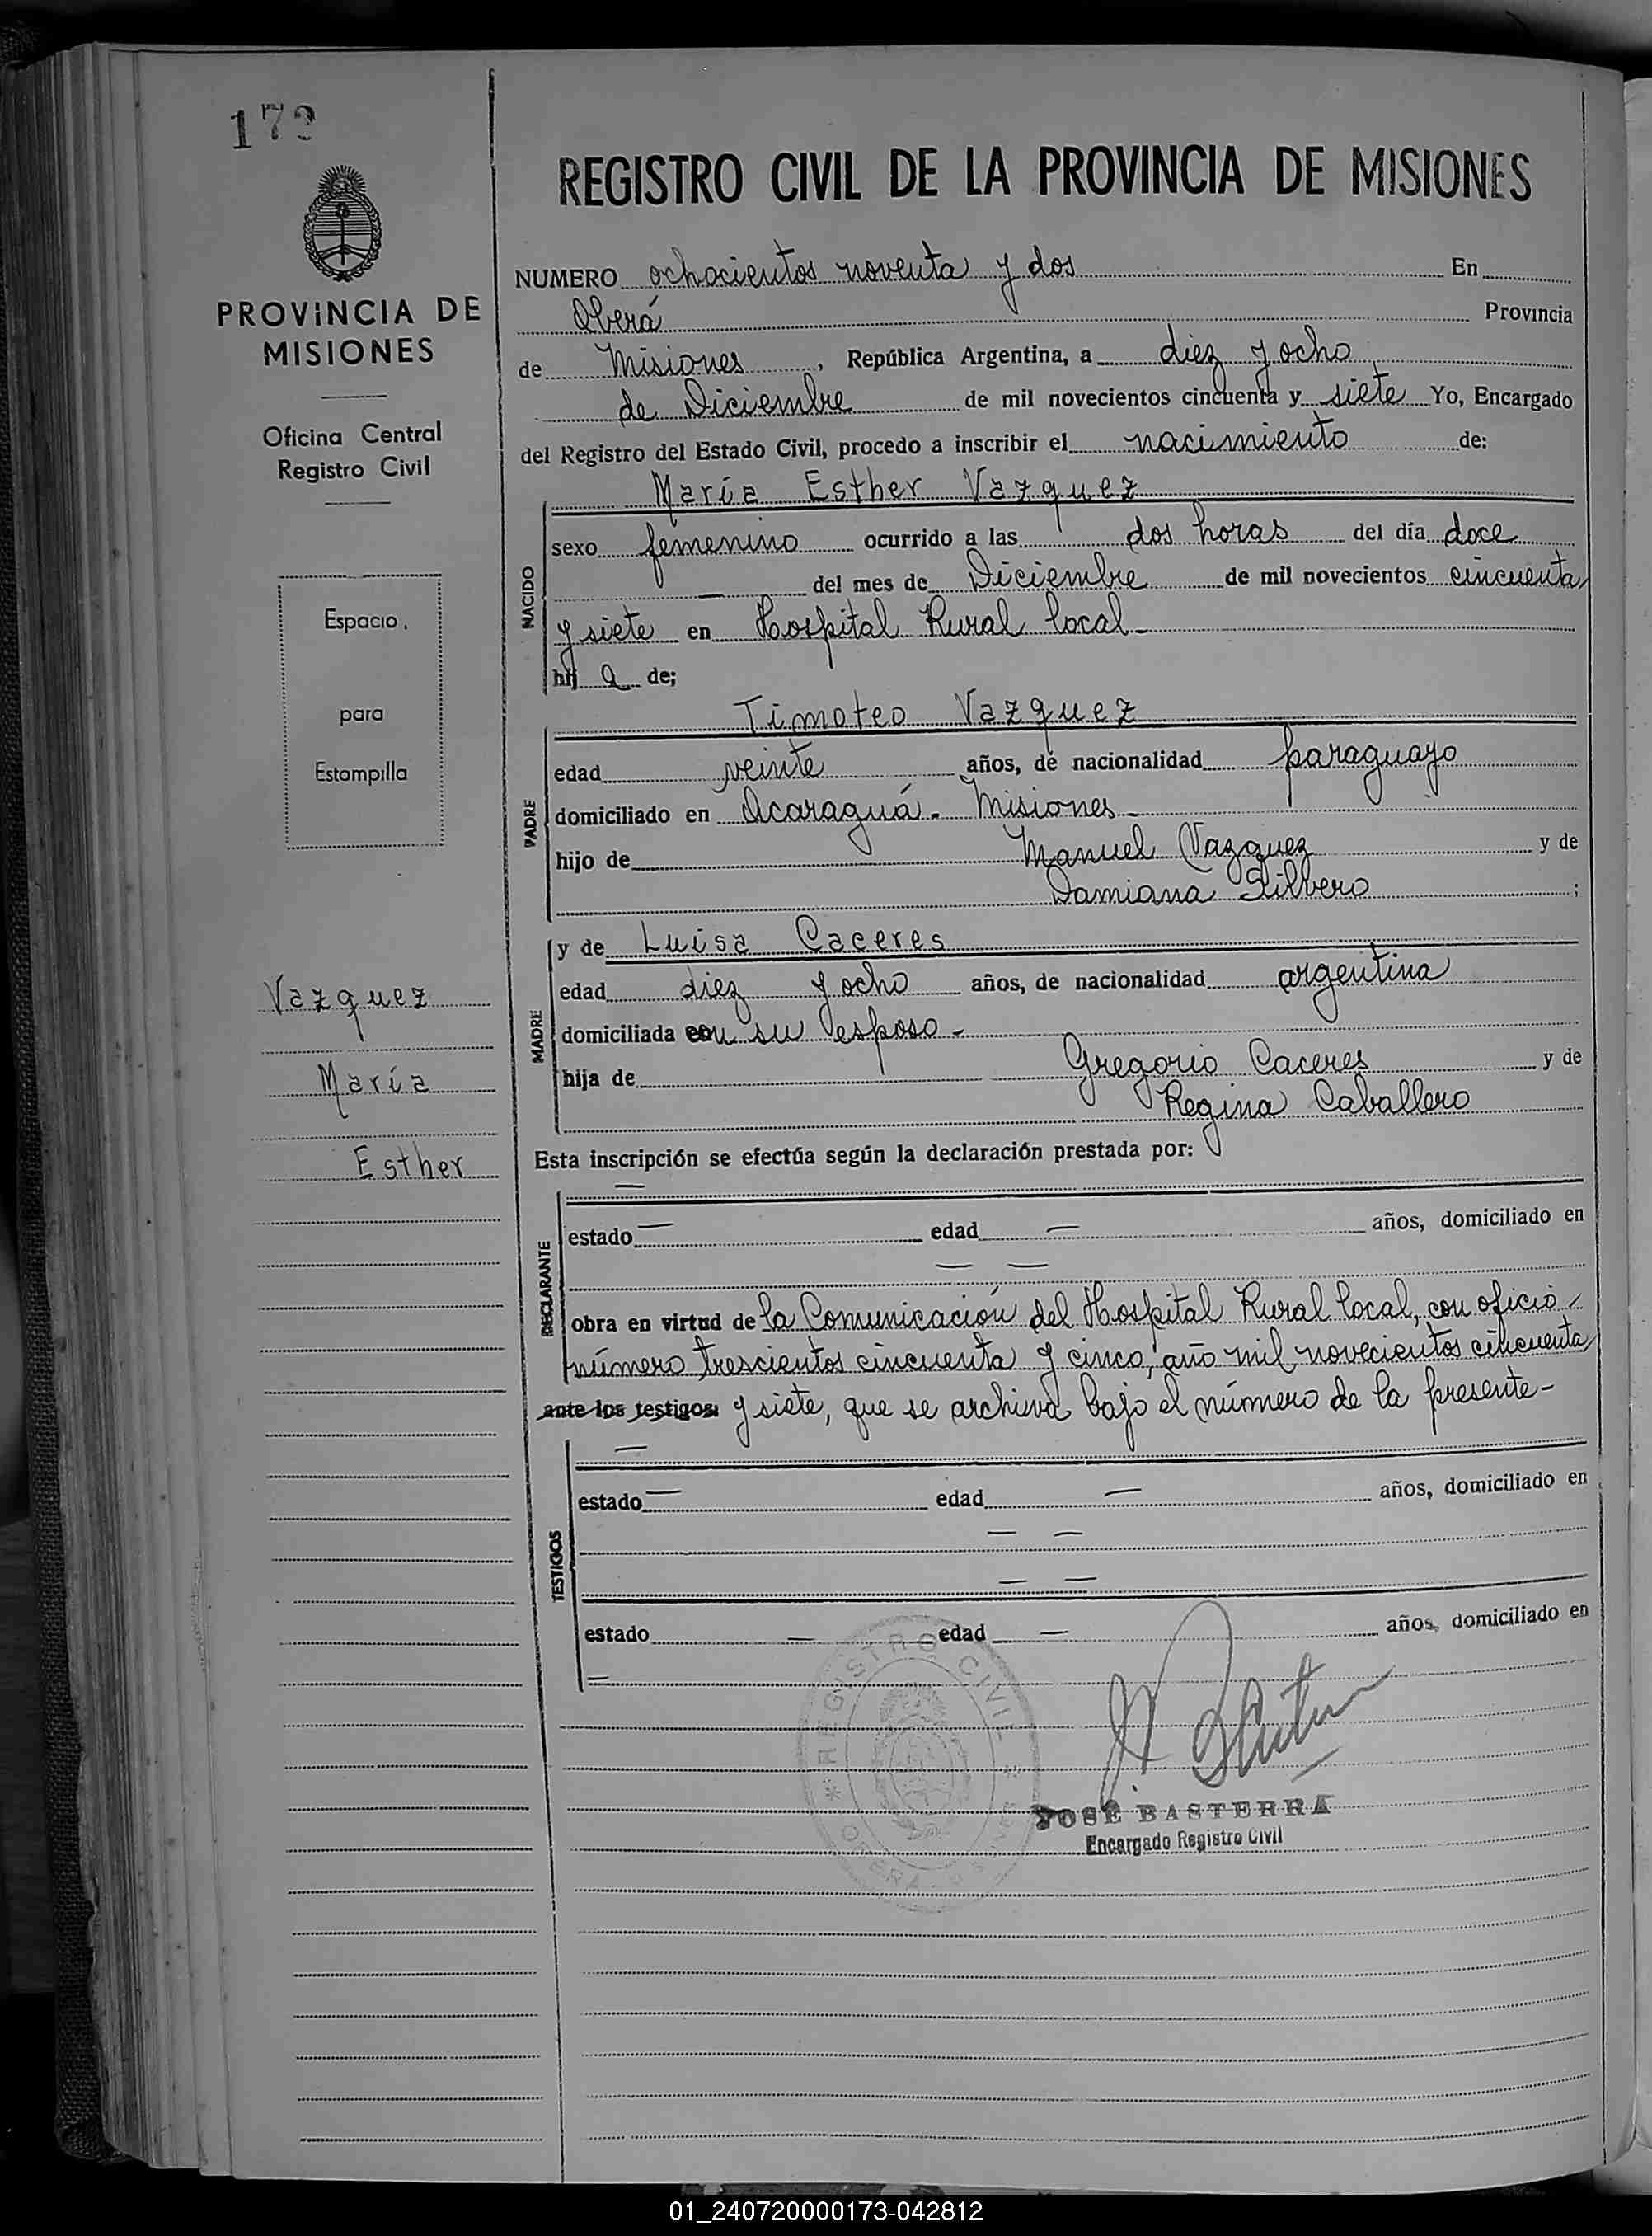 172
PROVINCIA DE
MISIONES
Oficina Central
Registro Civil
Espacio
para
Estampilla
Vazquez
María
Esther
REGISTRO CIVIL DE LA PROVINCIA DE MISIONES
NUMERO ochocientos noventa y dos En
Oberá Provincia
de Misiones, República Argentina, a diez y ocho
de Diciembre de mil novecientos cincuenta y siete Yo, Encargado
del Registro del Estado Civil, procedo a inscribir el nacimiento de:
María Esther Vazquez
NACIDO
sexo femenino ocurrido a las dos horas del día doce
— del mes de Diciembre de mil novecientos cincuenta
y siete en Hospital Rural local —
hij a de;
Timoteo Vazquez
PADRE
edad veinte años, de nacionalidad paraguayo
domiciliado en Acaraguá - Misiones —
hijo de Manuel Vazquez y de
Damiana Silvero ;
MADRE
y de Luisa Caceres
edad diez y ocho años, de nacionalidad argentina
domiciliada con su esposo -
hija de Gregorio Caceres y de
Regina Caballero
Esta inscripción se efectúa según la declaración prestada por:
DECLARANTE
—
estado — edad — años, domiciliado en
— —
obra en virtud de la Comunicación del Hospital Rural local, con oficio
número trescientos cincuenta y cinco, año mil novecientos cincuenta
ante los testigos: y siete, que se archiva bajo el número de la presente -
TESTIGOS
—
estado — edad — años, domiciliado en
— —
— —
estado — edad — años, domiciliado en
—
REGISTRO CIVIL
OBERA
JOSÉ BASTERRA
Encargado Registro Civil
01_240720000173-042812